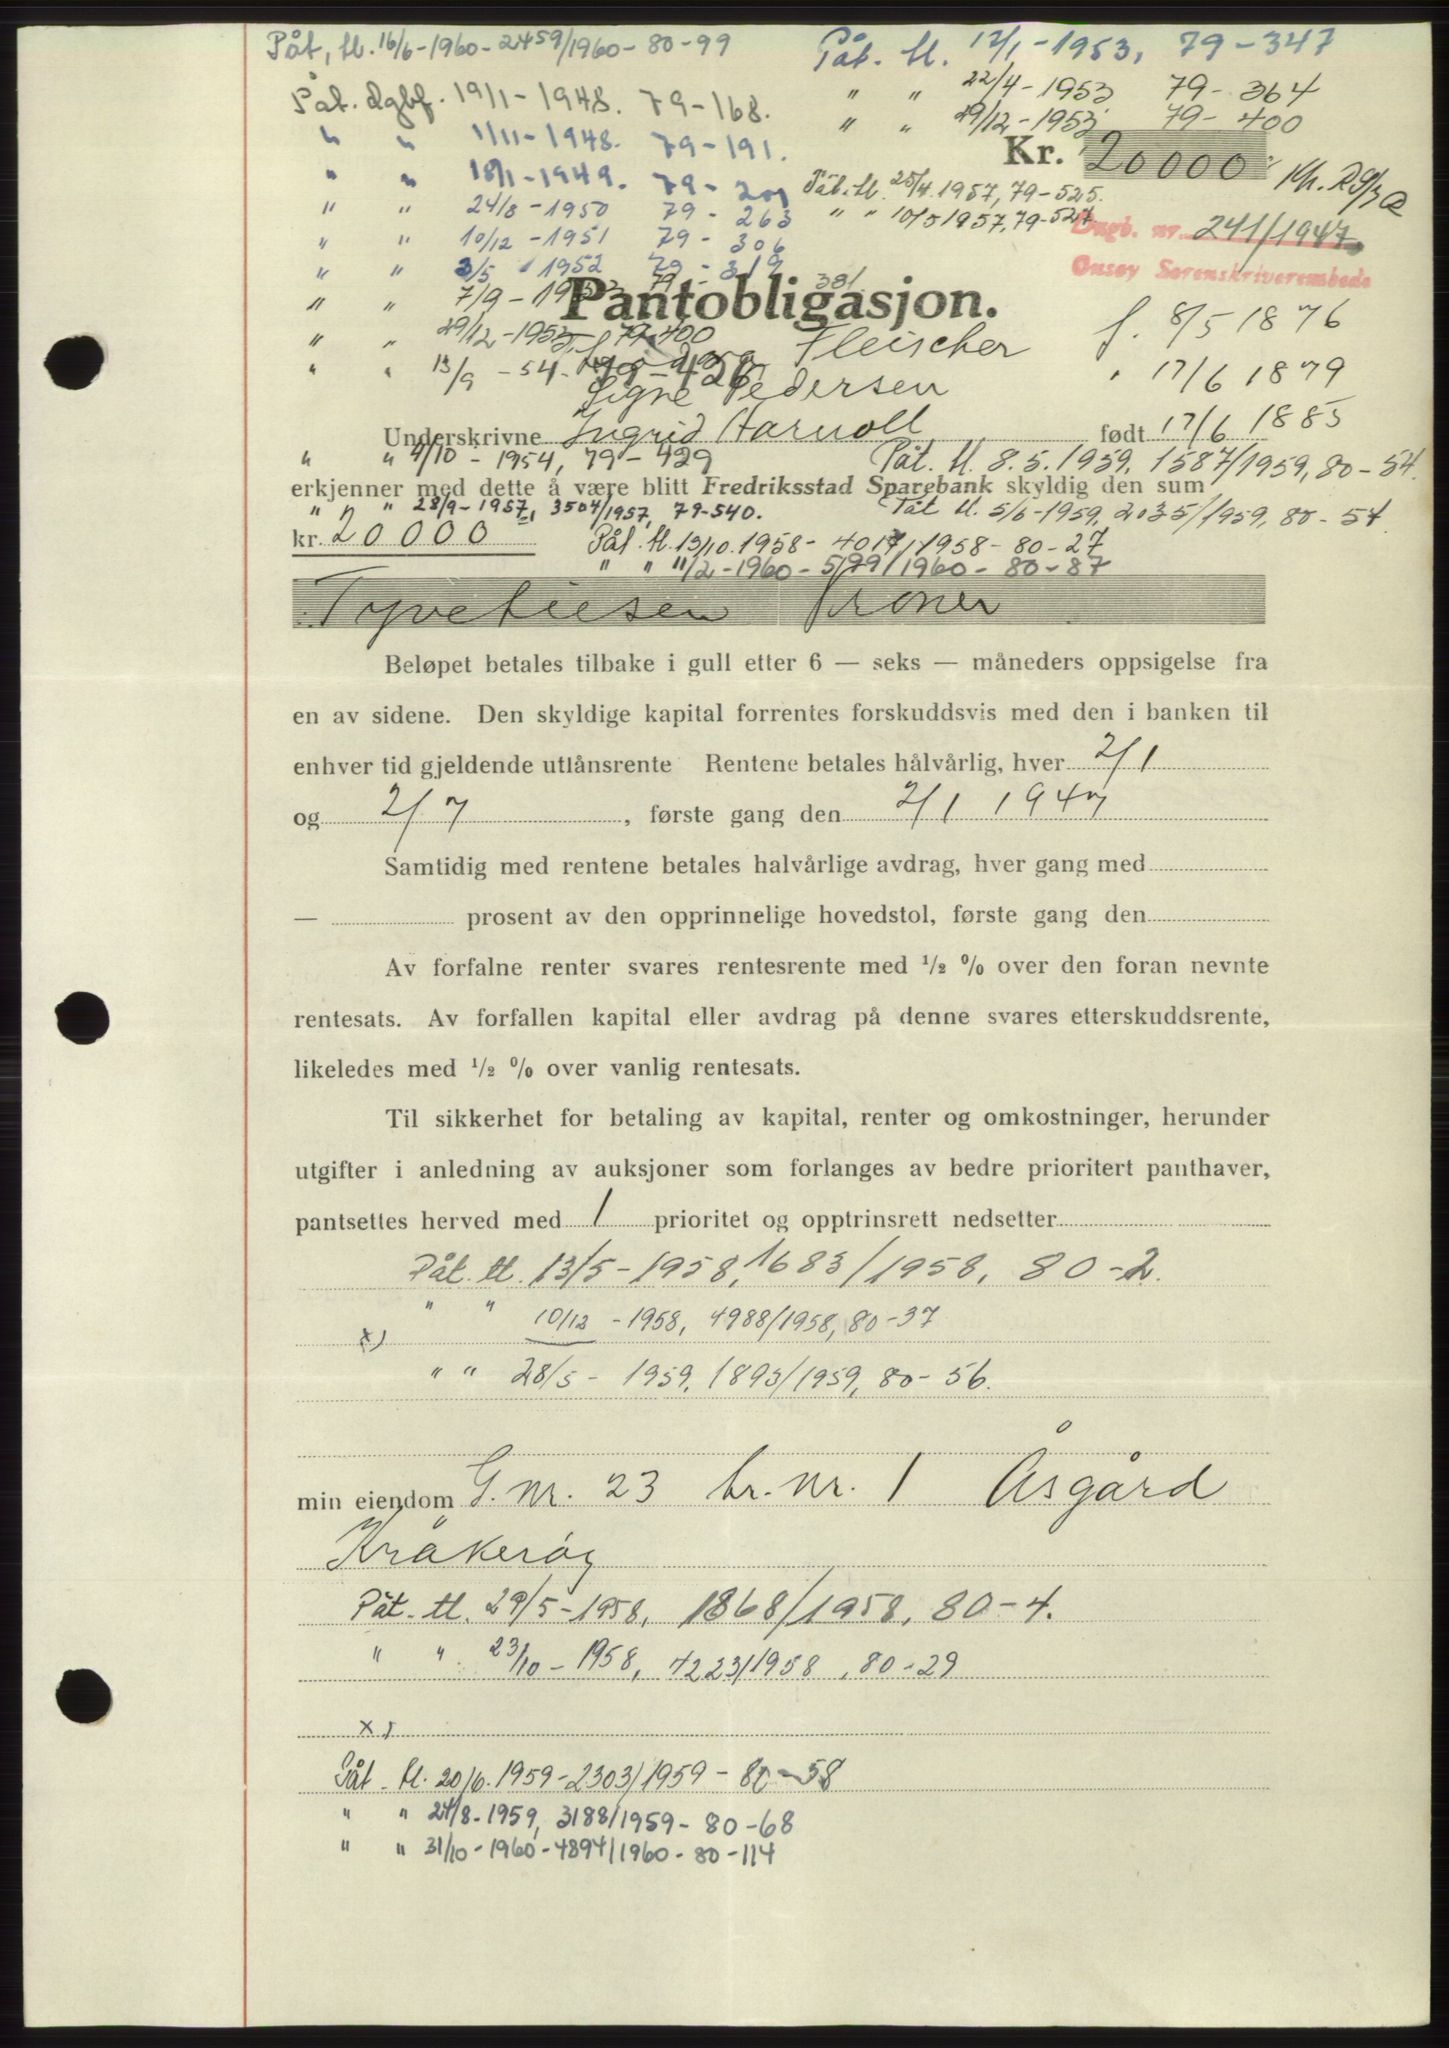 Påt. tl. 16/6-1960-2459/1960-80-99
Påt. tl. 17/1-1953, 79-347
" " 22/4-1953 79-364
" " 29/12-1953 79-400
Påt. dgbf. 19/1-1948. 79-168.
" " 1/11-1948. 79-191.
" " 18/1-1949. 79-201
" " 24/8-1950 79-263
" " 10/12-1951 79-306
" " 3/5 1952 79-319
" " 7/9-1953 79-381
" " 29/12-1953, 79-400
" " 13/9-54. 79-426
Kr. 20000
Påt. tl. 25/4.1957, 79-525.
" " 10/5 1957, 79-527
Dagb. nr. 241/1947
Onsøy Sorenskriverembede
Pantobligasjon.
Fleischer f. 8/5 1876
Signe Pedersen " 17/6 1879
Underskrivne Ingrid Harnoll født 17/6 1885
" " 4/10-1954, 79-429 Påt. tl. 8.5.1959, 1587/1959, 80-54.
erkjenner med dette å være blitt Fredriksstad Sparebank skyldig den sum
" " 28/9-1957, 3504/1957, 79-540. Påt tl. 5/6-1959, 2035/1959, 80-57
kr. 20000 Påt. tl. 13/10.1958-4017/1958-80-27
" " 11/2-1960-579/1960-80-87
Tyvetusen Kroner
Beløpet betales tilbake i gull etter 6 — seks — måneders oppsigelse fra
en av sidene. Den skyldige kapital forrentes forskuddsvis med den i banken til
enhver tid gjeldende utlånsrente Rentene betales hålvårlig, hver 2/1
og 2/7, første gang den 2/1 1947
Samtidig med rentene betales halvårlige avdrag, hver gang med
— prosent av den opprinnelige hovedstol, første gang den
Av forfalne renter svares rentesrente med 1/2 % over den foran nevnte
rentesats. Av forfallen kapital eller avdrag på denne svares etterskuddsrente,
likeledes med 1/2 % over vanlig rentesats.
Til sikkerhet for betaling av kapital, renter og omkostninger, herunder
utgifter i anledning av auksjoner som forlanges av bedre prioritert panthaver,
pantsettes herved med 1 prioritet og opptrinsrett nedsetter
Påt. tl. 13/5-1958, 1683/1958, 80-2.
" " 10/12-1958, 4988/1958, 80-37
x)
" " 28/5-1959, 1893/1959, 80-56.
min eiendom G. nr. 23 br. nr. 1 Åsgård
Kråkerøy
Påt. tl. 29/5-1958, 1868/1958, 80-4.
" " 23/10-1958, 4223/1958, 80-29
x)
Påt. tl. 20/6.1959-2303/1959-80-58
" " 24/8-1959, 3188/1959-80-68
" " 31/10-1960-4894/1960-80-114